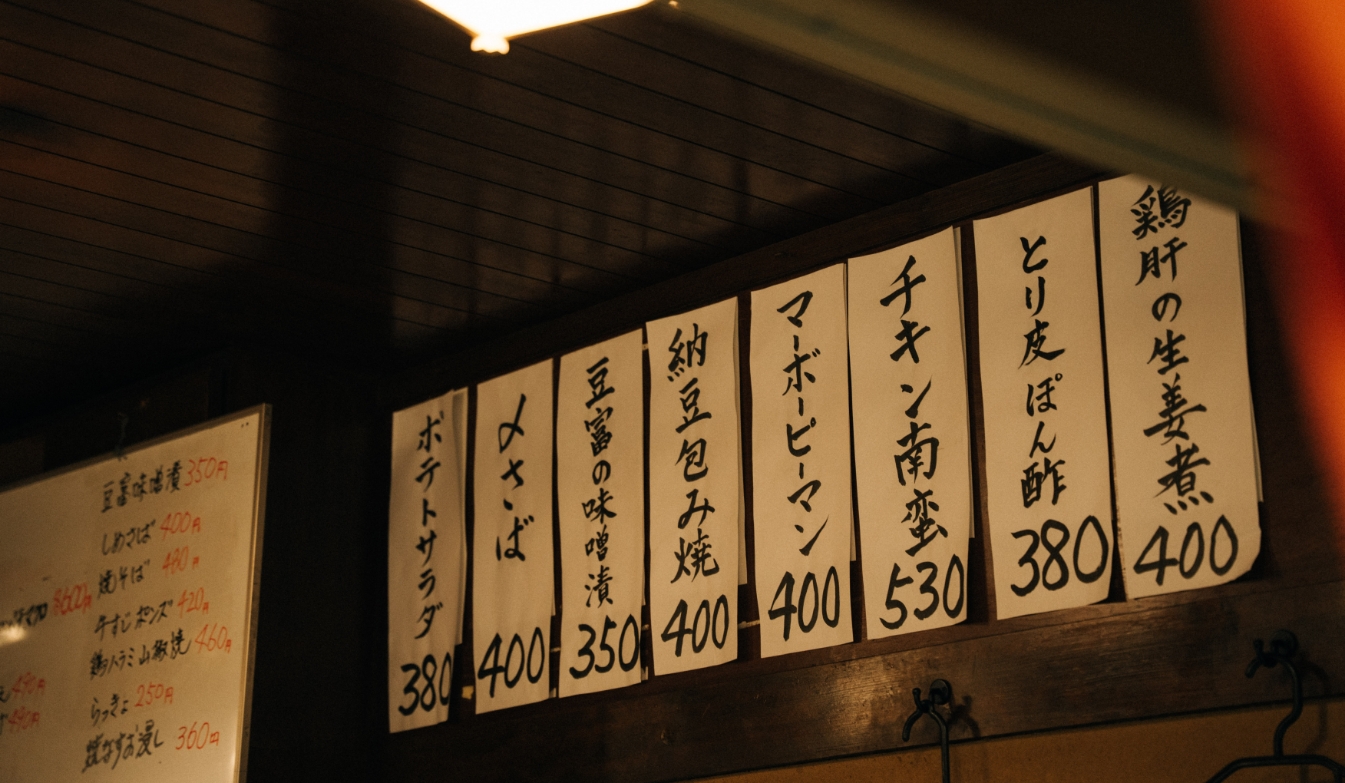 鶏肝の生姜煮
400
とり皮ぽん酢
380
チキン南蛮
530
マーボーピーマン
400
納豆包み焼
400
豆富の味噌漬
350
〆さば
400
ポテトサラダ
380
豆富味噌漬 350円
しめさば 400円
焼そば 480円
牛すじポンズ 420円
鶏ハラミ山椒焼 460円
らっきょ 250円
焼なすお浸し 360円
600円
490円
490円